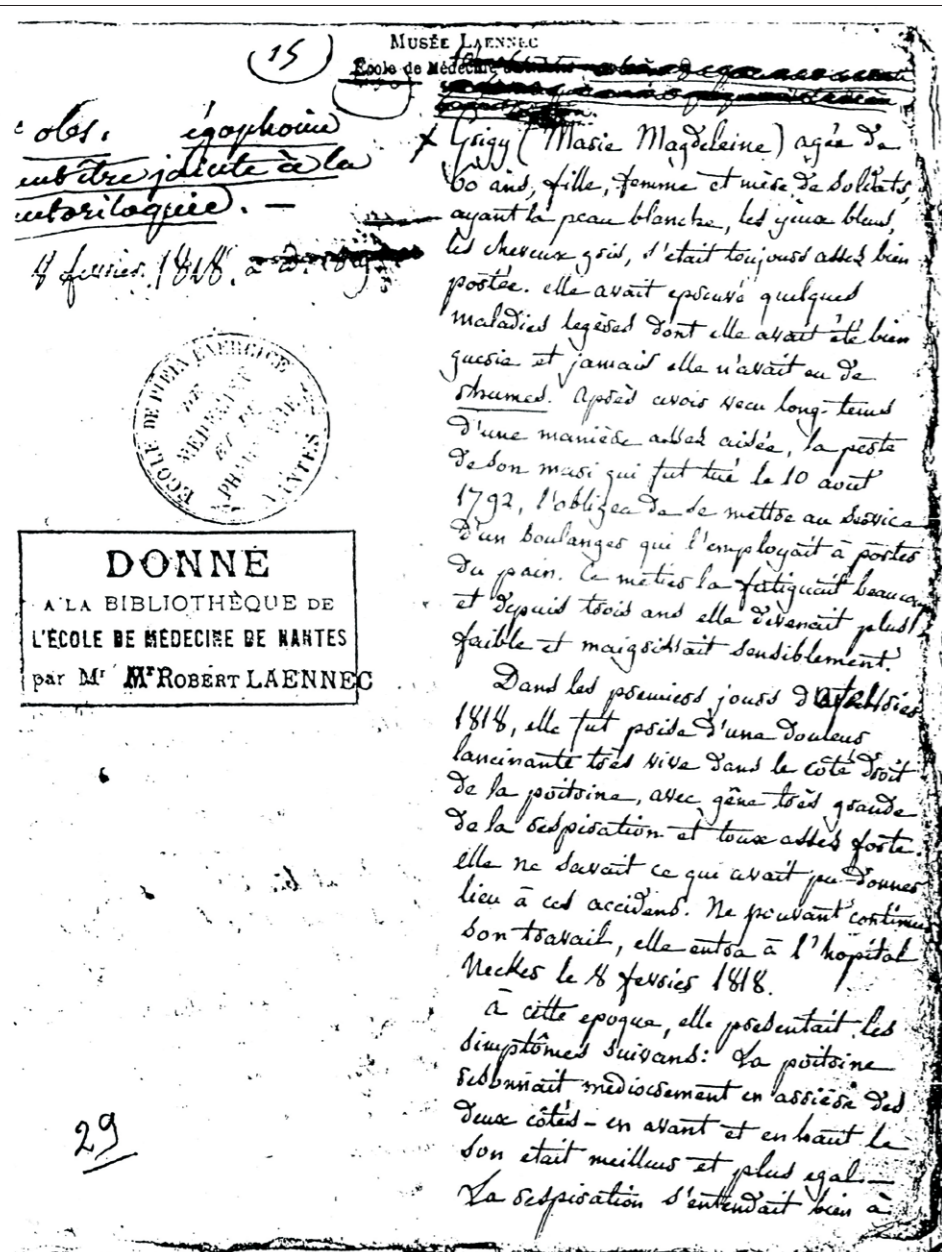 15
MUSÉE LAENNEC
École de Médecine
obs. égophonie
être jointe à la
8 fevrier. 1818.
ECOLE DE PLEIN EXERCICE
DE
MEDECINE
ET DE
PHARMACIE
NANTES
DONNÉ
A LA BIBLIOTHÈQUE DE
L'ÉCOLE DE MÉDECINE DE NANTES
par Mr Mr ROBERT LAENNEC
29
+ Grigy (Marie Magdeleine) agée de
60 ans, fille, femme et mère de soldats,
ayant la peau blanche, les yeux bleus,
les cheveux gris, s'était toujours assez bien
portée. elle avait eprouvé quelques
maladies legères dont elle avait été bien
guerie et jamais elle n'avait eu de
rhumes. après avoir vecu long-tems
d'une manière assez aisée, la perte
de son mari qui fut tué le 10 aout
1792, l'obligea de se mettre au service
d'un boulanger qui l'employait à porter
du pain. Ce metier la fatiguait beaucoup
et depuis trois ans elle devenait plus
faible et maigrissait sensiblement.
Dans les premiers jours de fevrier
1818, elle fut prise d'une douleur
lancinante très vive dans le coté droit
de la poitrine, avec gêne très grande
de la respiration et toux assez forte.
elle ne savait ce qui avait pu donner
lieu à ces accidens. Ne pouvant continuer
son travail, elle entra à l'hopital
Necker le 8 fevrier 1818.
à cette epoque, elle presentait les
simptômes suivans: La poitrine
resonnait mediocrement en arrière des
deux côtés - en avant et en haut le
son etait meilleur et plus egal. —
La respiration s'entendait bien à